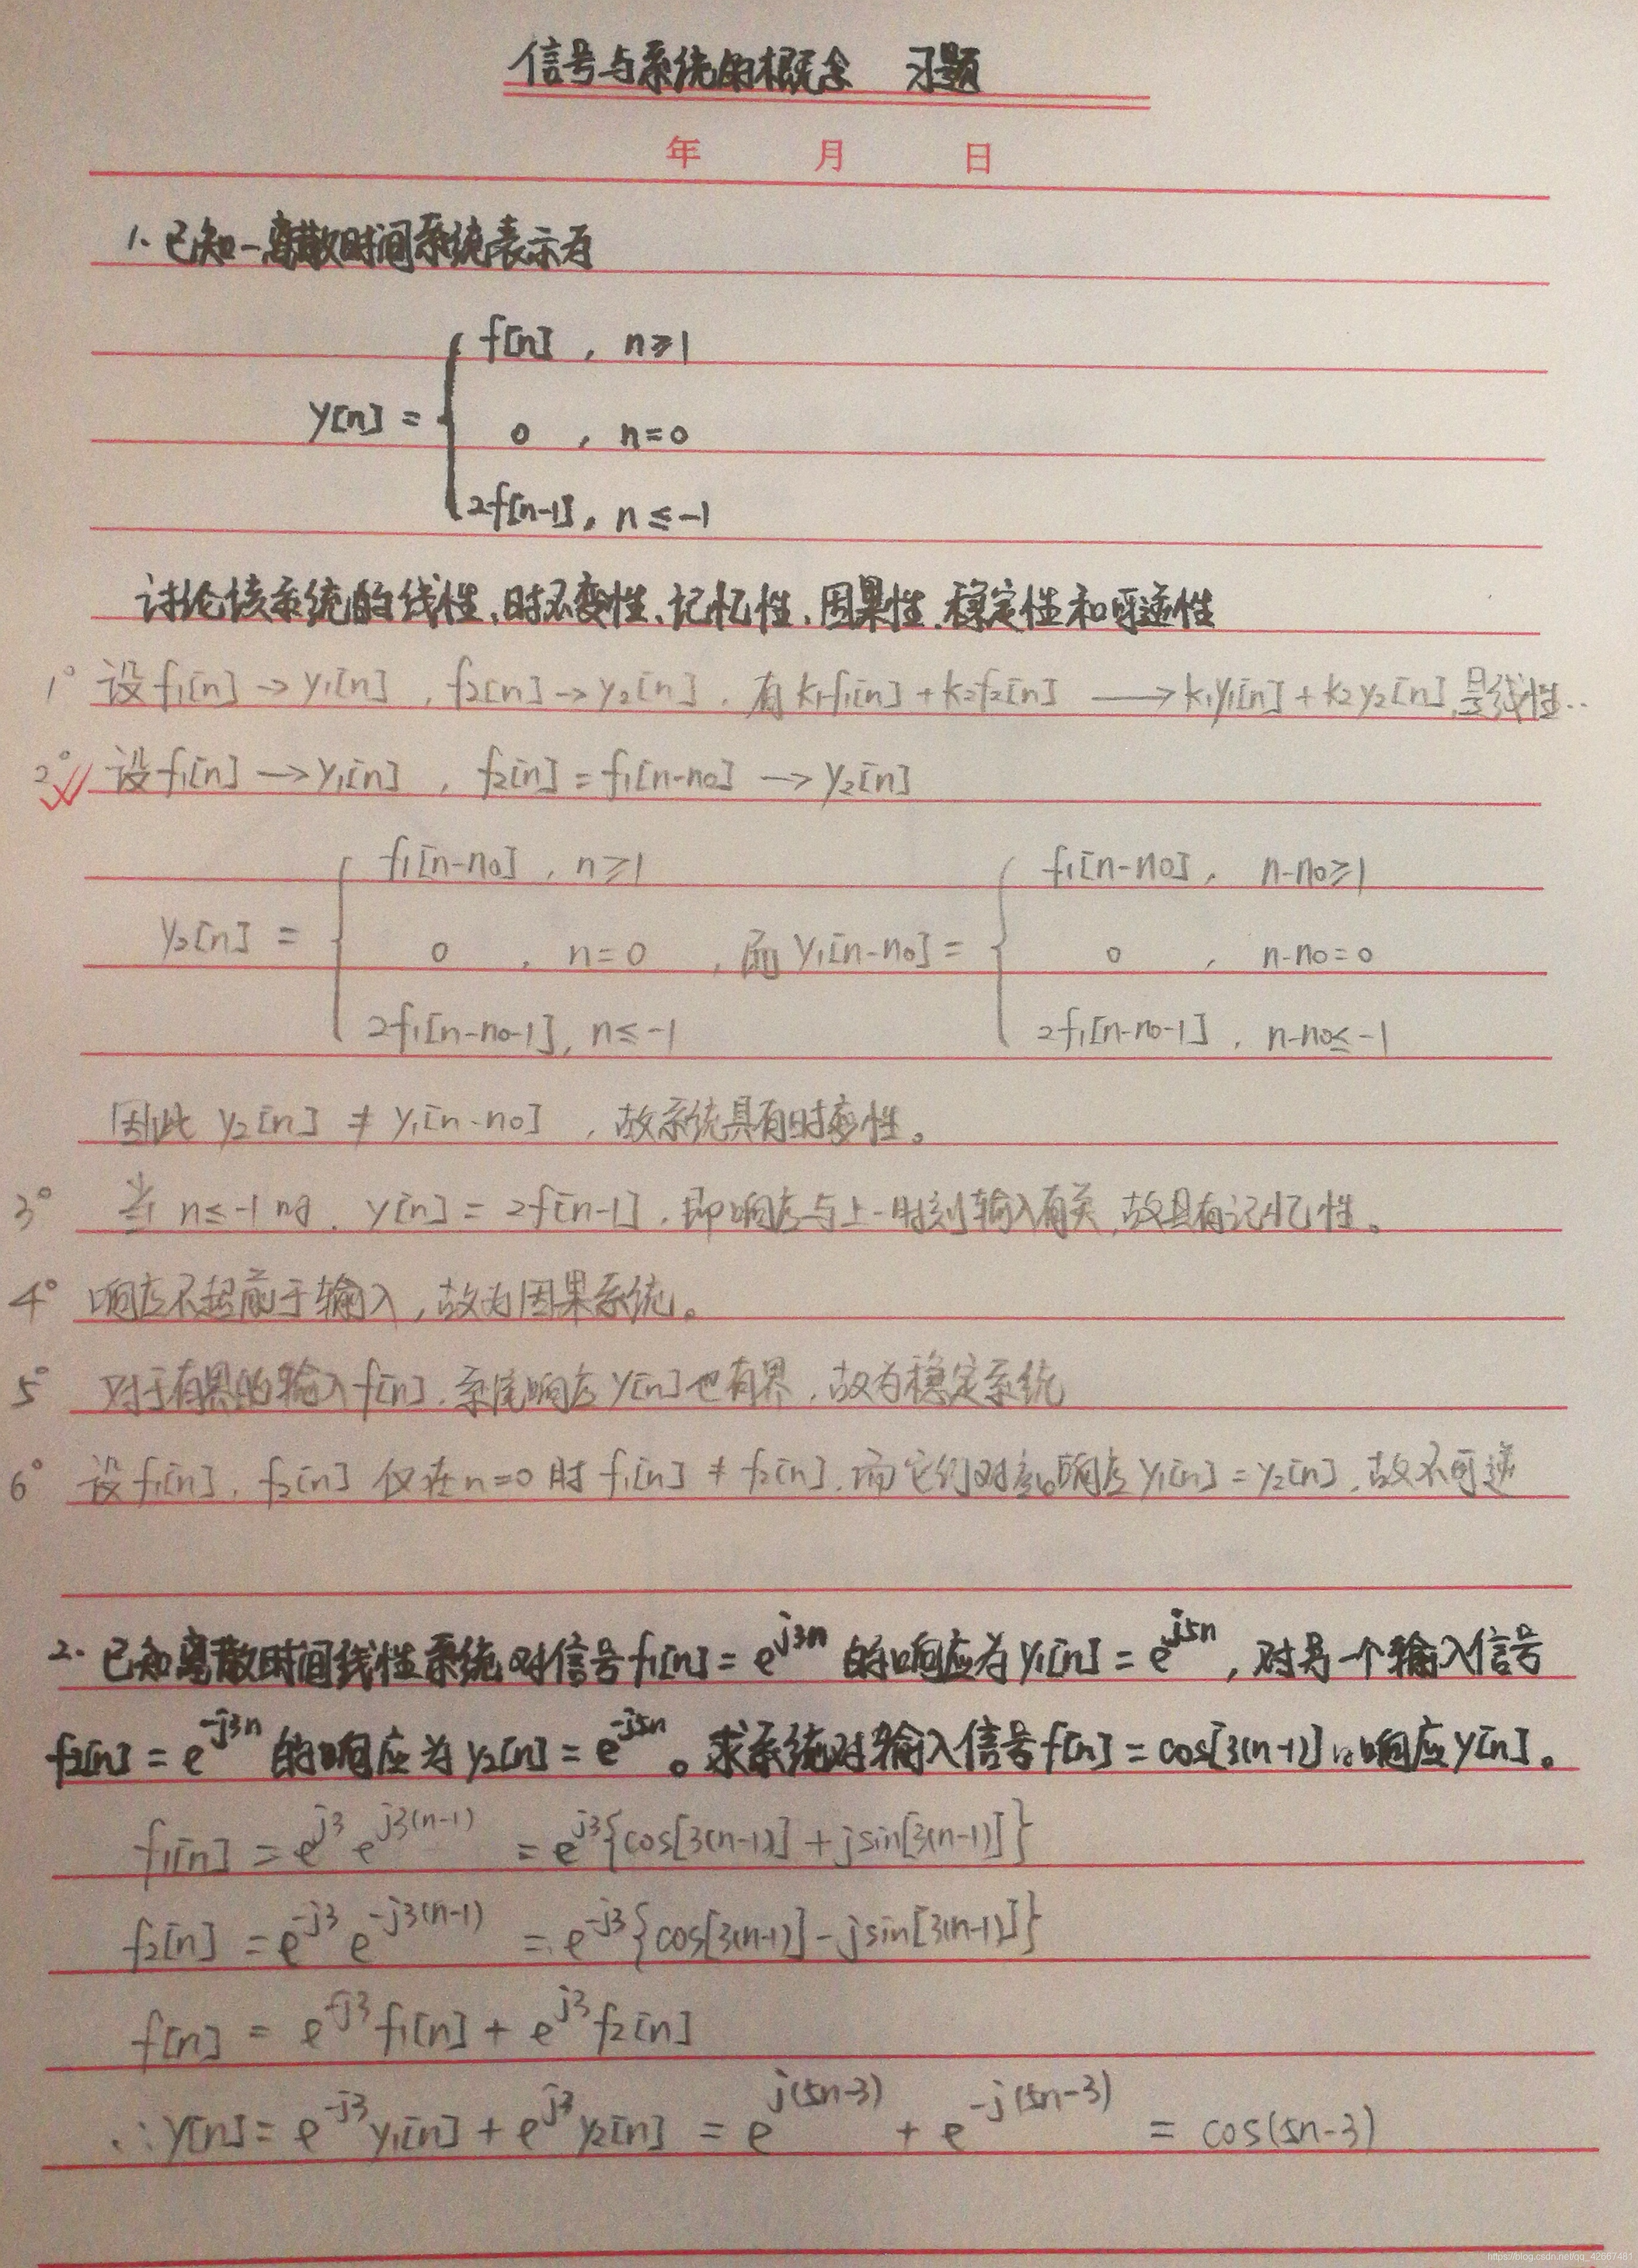 信号与系统的概念 习题
年 月 日
1. 已知一离散时间系统表示为
f[n] , n≥1
y[n] = { 0 , n=0
2f[n-1], n≤-1
讨论该系统的线性、时不变性、记忆性、因果性、稳定性和可逆性
1° 设f1[n]→y1[n], f2[n]→y2[n], 有k1f1[n]+k2f2[n] ⟶ k1y1[n]+k2y2[n],是线性..
2° 设f1[n]⟶y1[n], f2[n]=f1[n-n0]⟶y2[n]
f1[n-n0], n≥1 f1[n-n0], n-n0≥1
y2[n] = { 0 , n=0 , 而y1[n-n0] = { 0 , n-n0=0
2f1[n-n0-1], n≤-1 2f1[n-n0-1], n-n0≤-1
因此 y2[n] ≠ y1[n-n0] ,故系统具有时变性。
3° 当n≤-1时, y[n]=2f[n-1],即响应与上一时刻输入有关,故具有记忆性。
4° 响应不超前于输入,故为因果系统。
5° 对于有界的输入f[n],系统响应y[n]也有界,故为稳定系统
6° 设f1[n], f2[n] 仅在n=0时 f1[n]≠f2[n],而它们对应的响应y1[n]=y2[n],故不可逆
2. 已知离散时间线性系统对信号f1[n]=e^{j3n}的响应为y1[n]=e^{j5n},对另一个输入信号
f2[n]=e^{-j3n}的响应为y2[n]=e^{-j5n}。求系统对输入信号f[n]=cos[3(n-1)]的响应y[n]。
f1[n] = e^{j3} e^{j3(n-1)} = e^{j3}{cos[3(n-1)]+jsin[3(n-1)]}
f2[n] = e^{-j3} e^{-j3(n-1)} = e^{-j3}{cos[3(n-1)]-jsin[3(n-1)]}
f[n] = e^{-j3}f1[n] + e^{j3}f2[n]
∴y[n]= e^{-j3}y1[n] + e^{j3}y2[n] = e^{j(5n-3)} + e^{-j(5n-3)} = cos(5n-3)
https://blog.csdn.net/qq_42667481